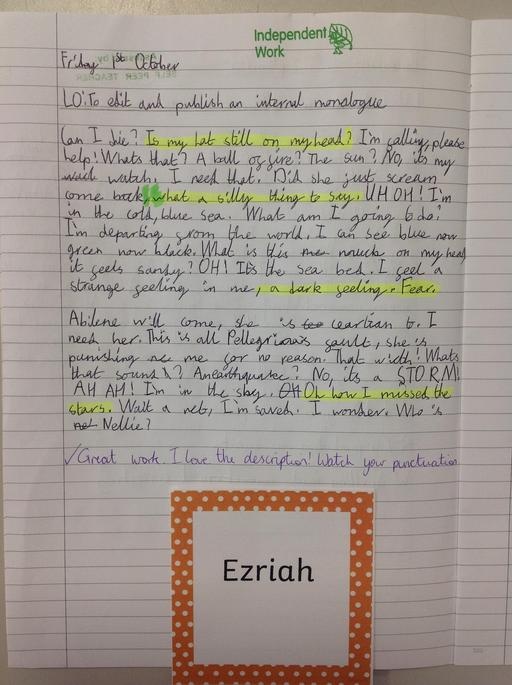 Independent
Work
Friday 1st October
SELF PEER TEACHER
LO: To edit and publish an internal monologue
Can I die? Is my hat still on my head? I'm falling, please
help! Whats that? A ball of fire? The sun? No, its my
watch. I need that. Did she just scream
come back, what a silly thing to say. UH OH! I'm
in the cold, blue sea. What am I going to do?
I'm departing from the world. I can see blue now
green now black. What is this muck on my head
it feels sandy? OH! It's the sea bed. I feel a
strange feeling in me, a dark feeling. Fear.
Abilene will come, she is ceartian to. I
need her. This is all Pellegrina's fault, she is
punishing me for no reason. That witch! Whats
that sound? An earthquake? No, its a STORM!
AH AH! I'm in the sky. OH Oh how I missed the
stars. Wait a net, I'm saved. I wonder. Who is
not Nellie?
✓Great work. I love the description! Watch your punctuation
Ezriah